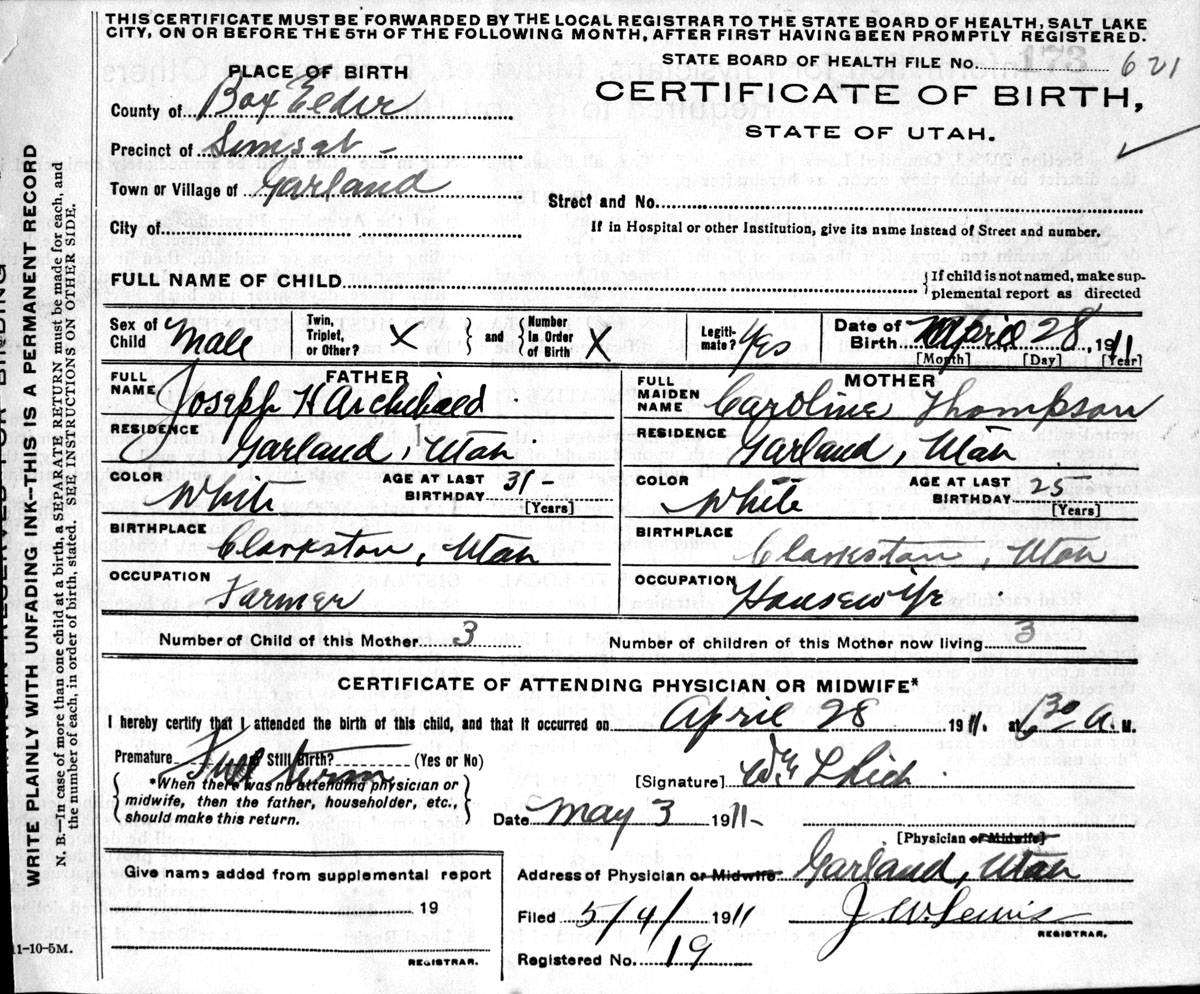 THIS CERTIFICATE MUST BE FORWARDED BY THE LOCAL REGISTRAR TO THE STATE BOARD OF HEALTH, SALT LAKE
CITY, ON OR BEFORE THE 5TH OF THE FOLLOWING MONTH, AFTER FIRST HAVING BEEN PROMPTLY REGISTERED.
STATE BOARD OF HEALTH FILE No. 173 621
PLACE OF BIRTH
CERTIFICATE OF BIRTH,
STATE OF UTAH.
County of Box Elder
Precinct of
Town or Village of Garland
Street and No.
City of
If in Hospital or other Institution, give its name instead of Street and number.
FULL NAME OF CHILD
{If child is not named, make sup-
plemental report as directed
Sex of Child Male
Twin, Triplet, or Other? X } and { Number in Order of Birth X
Legiti-mate? Yes
Date of Birth April 28, 1911
[Month] [Day] [Year]
FATHER
FULL NAME Joseph H Archibald
RESIDENCE Garland, Utah
COLOR White AGE AT LAST BIRTHDAY 31 - [Years]
BIRTHPLACE Clarkston, Utah
OCCUPATION Farmer
MOTHER
FULL MAIDEN NAME Caroline Thompson
RESIDENCE Garland, Utah
COLOR White AGE AT LAST BIRTHDAY 25 [Years]
BIRTHPLACE Clarkston, Utah
OCCUPATION Housewife
Number of Child of this Mother 3 Number of children of this Mother now living 3
CERTIFICATE OF ATTENDING PHYSICIAN OR MIDWIFE*
I hereby certify that I attended the birth of this child, and that it occurred on April 28 1911. at 6 30 A. M.
Premature Still Birth? (Yes or No)
Full term
{ *When there was no attending physician or
midwife, then the father, householder, etc.,
should make this return. }
[Signature]
Date May 3 1911-
[Physician or Midwife]
Address of Physician or Midwife Garland, Utah
Filed 5/4/ 1911 J. W. Lewis
REGISTRAR.
Registered No. 19
Give name added from supplemental report
19
REGISTRAR.
11-10-5M.
WRITE PLAINLY WITH UNFADING INK—THIS IS A PERMANENT RECORD
N. B.—In case of more than one child at a birth, a SEPARATE RETURN must be made for each, and
the number of each, in order of birth, stated. SEE INSTRUCTIONS ON OTHER SIDE.